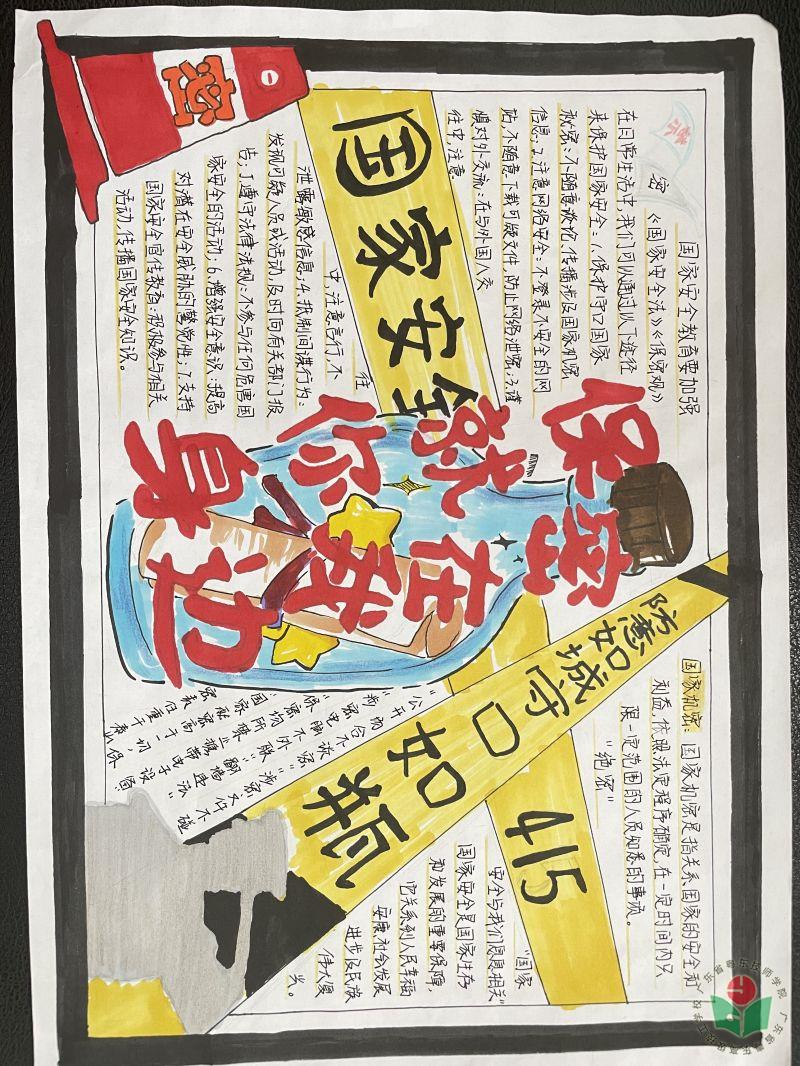 保密
就在
你我
身边
国家安全
密
国家安全教育要加强
密 《国家安全法》《保密观》
在日常生活中,我们可以通过以下途径
来保护国家安全:1.保护守口国家
机密:不随意谈论、传播涉及国家机密
信息;2.注意网络安全:不登录不安全的网
站,不随意下载可疑文件,防止网络泄密;3.谨
慎对外交流:在与外国人交
往中,注意
往
中,注意言行,不
泄露敏感信息;4.抵制间谍行为:
发现可疑人员或活动,及时向有关部门报
告;5.遵守法律法规:不参与任何危害国
家安全的活动;6.增强安全意识:提高
对潜在安全威胁的警觉性;7.支持
国家安全宣传教育:积极参与相关
活动,传播国家安全知识。
防意如城守口如瓶
415
国家机密:国家机密是指关系国家的安全和
利益,依照法定程序确定,在一定时间内只
限一定范围的人员知悉的事项。
"绝密"
"国家
安全与我们息息相关"
国家安全是国家生存
和发展的重要保障,
它关系到人民幸福
安康,社会发展
进步及民族
伟大复
兴。